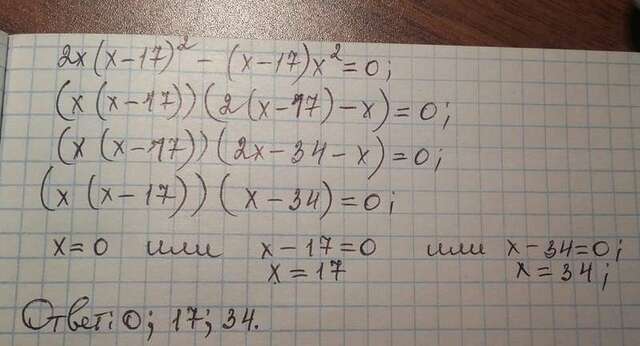 2x(x-17)² - (x-17)x² = 0;
(x(x-17))(2(x-17)-x) = 0;
(x(x-17))(2x-34-x) = 0;
(x(x-17))(x-34) = 0;
x=0 или x-17=0 или x-34=0;
x=17 x=34;
Ответ: 0; 17; 34.